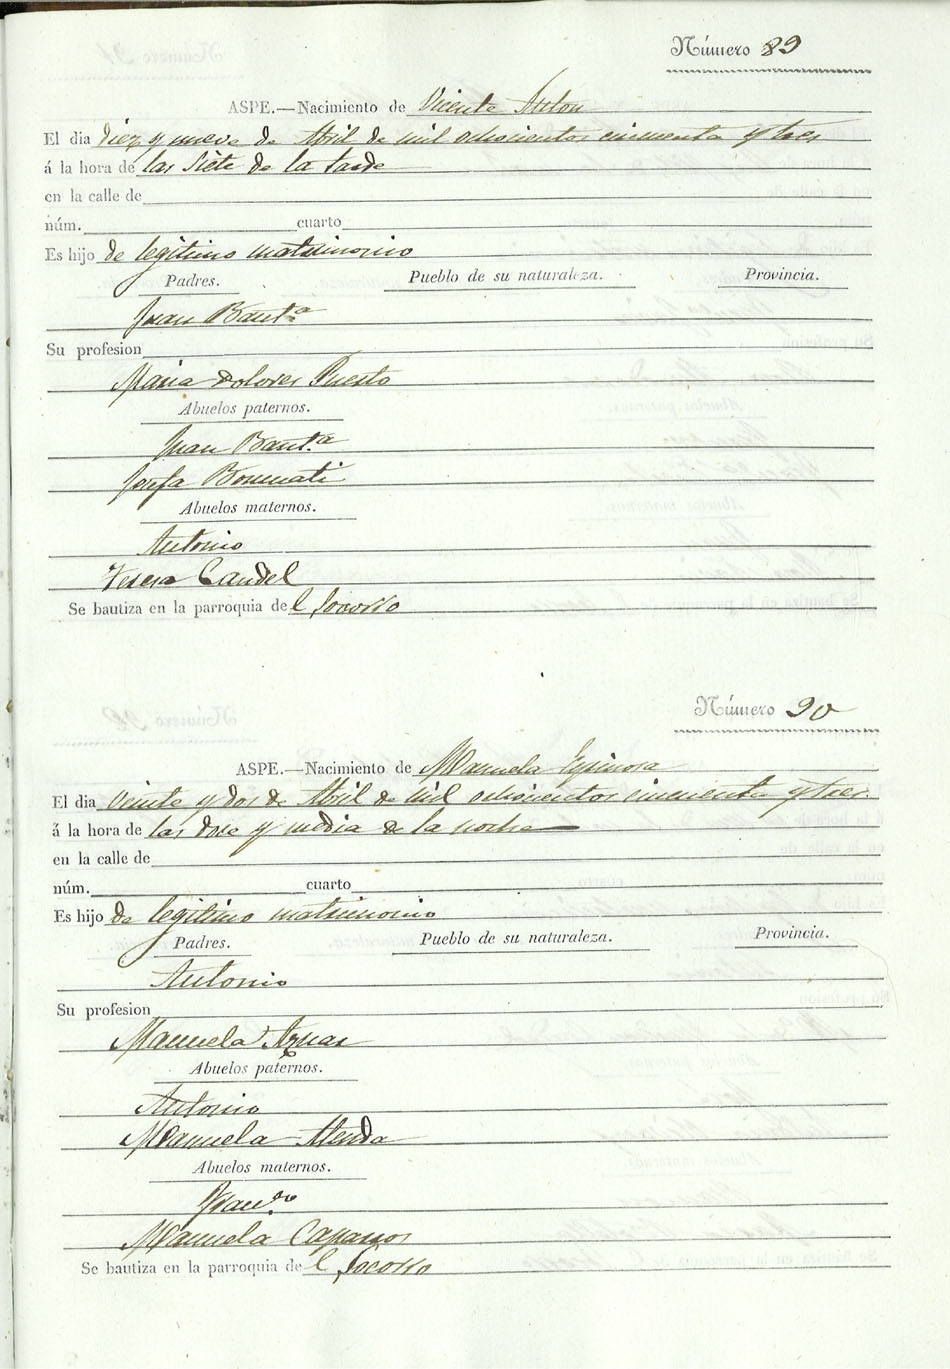 Número 89
ASPE.—Nacimiento de Vicente Anton
El dia diez y nueve de Abril de mil ochocientos cincuenta y tres
á la hora de las siete de la tarde
en la calle de
núm. cuarto
Es hijo de legitimo matrimonio
Padres. Pueblo de su naturaleza. Provincia.
Juan Baut.ª
Su profesion
Maria Dolores Puesto
Abuelos paternos.
Juan Baut.ª
Josefa Bonmati
Abuelos maternos.
Antonio
Teresa Candel
Se bautiza en la parroquia del Socorro
Número 90
ASPE.—Nacimiento de Manuela Espinosa
El dia veinte y dos de Abril de mil ochocientos cincuenta y tres.
á la hora de las dose y media de la noche
en la calle de
núm. cuarto
Es hijo de legitimo matrimonio
Padres. Pueblo de su naturaleza. Provincia.
Antonio
Su profesion
Manuela Aznar
Abuelos paternos.
Antonio
Manuela
Abuelos maternos.
Fran.co
Manuela Caparros
Se bautiza en la parroquia del Socorro